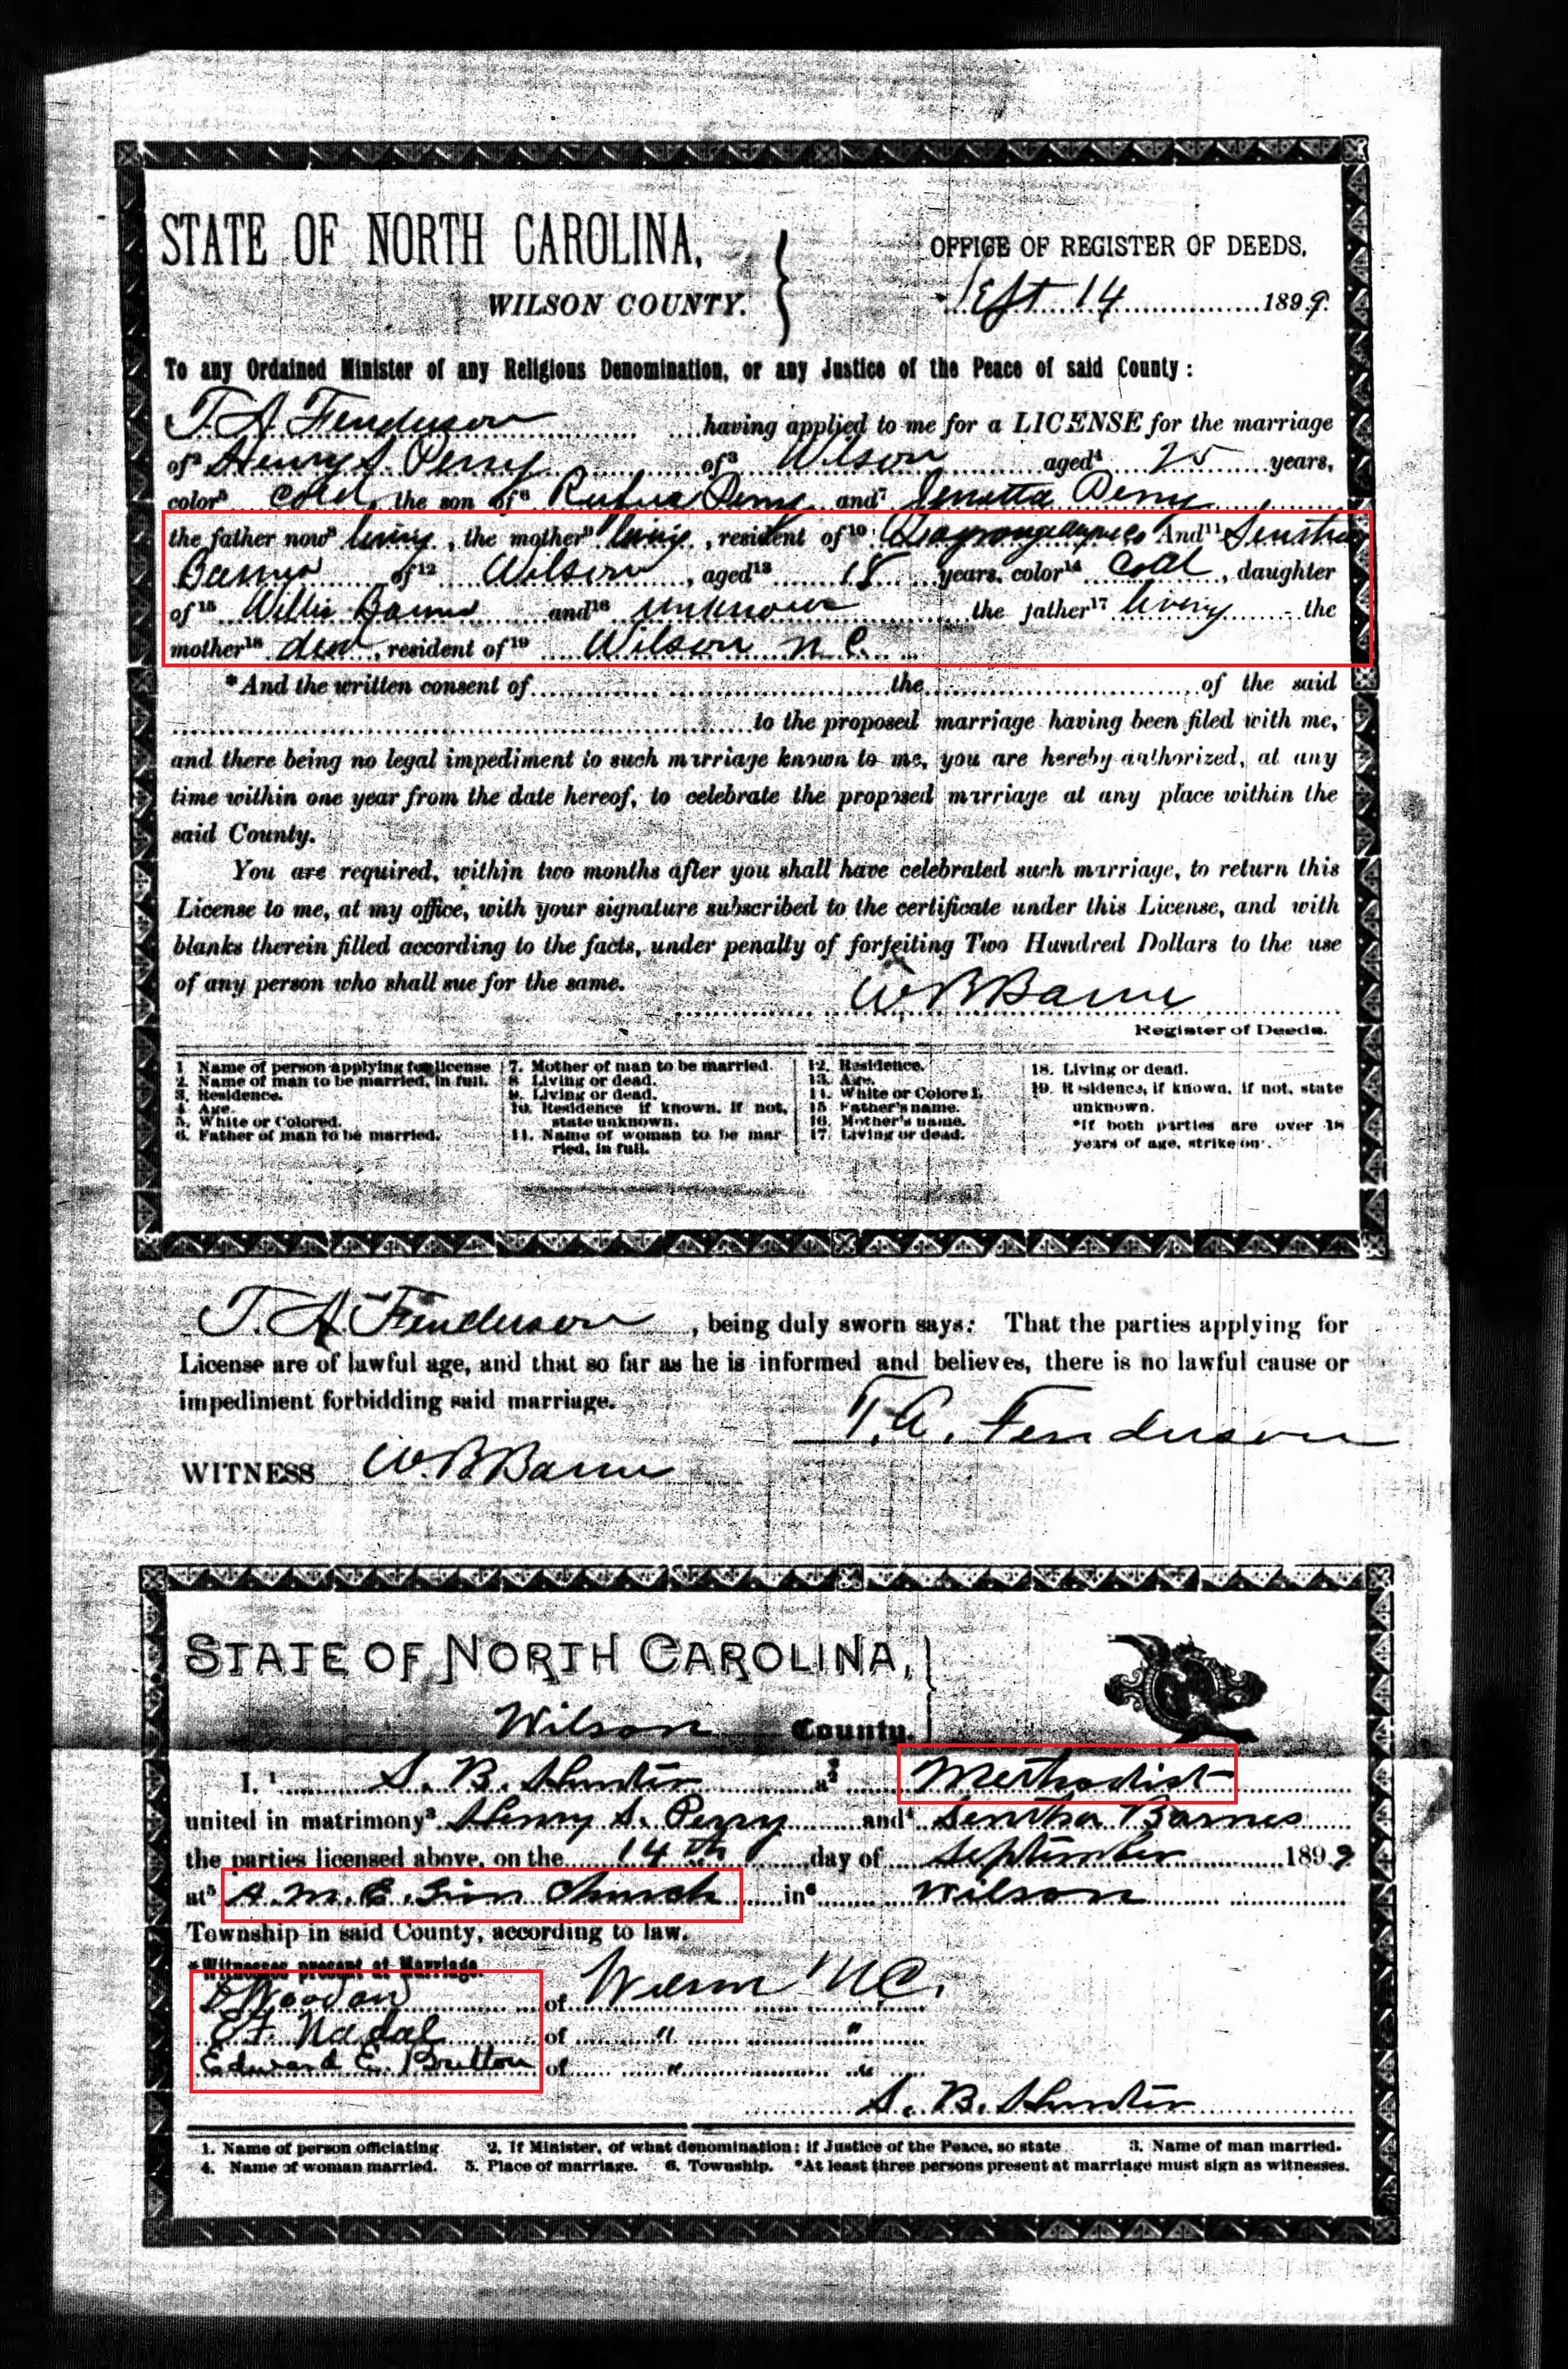 STATE OF NORTH CAROLINA,
WILSON COUNTY.
OFFICE OF REGISTER OF DEEDS.
Sept 14 1899.
To any Ordained Minister of any Religious Denomination, or any Justice of the Peace of said County:
T. A. Fenderson having applied to me for a LICENSE for the marriage
of² Henry S. Perry of³ Wilson aged⁴ 25 years,
color⁵ Cold, the son of⁶ Rufus Perry and⁷ Perry
the father now⁸ living, the mother⁹ living, resident of¹⁰ And¹¹ Sentha
Barnes of¹² Wilson, aged¹³ 18 years, color¹⁴ Cold, daughter
of¹⁵ Willis Barnes and¹⁶ unknown the father¹⁷ living the
mother¹⁸ dead, resident of¹⁹ Wilson N. C.
*And the written consent of the of the said
to the proposed marriage having been filed with me,
and there being no legal impediment to such marriage known to me, you are hereby authorized, at any
time within one year from the date hereof, to celebrate the proposed marriage at any place within the
said County.
You are required, within two months after you shall have celebrated such marriage, to return this
License to me, at my office, with your signature subscribed to the certificate under this License, and with
blanks therein filled according to the facts, under penalty of forfeiting Two Hundred Dollars to the use
of any person who shall sue for the same.
W B Barnes
Register of Deeds.
1 Name of person applying for license
2. Name of man to be married, in full.
3. Residence.
4 Age.
5. White or Colored.
6. Father of man to be married.
7. Mother of man to be married.
8 Living or dead.
9. Living or dead.
10. Residence if known. If not, state unknown.
11. Name of woman to be married, in full.
12. Residence.
13. Age.
14. White or Colored.
15 Father's name.
16. Mother's name.
17. Living or dead.
18. Living or dead.
19. Residence, if known. If not, state
unknown.
*If both parties are over 18
years of age, strike out.
T. A. Fenderson, being duly sworn says: That the parties applying for
License are of lawful age, and that so far as he is informed and believes, there is no lawful cause or
impediment forbidding said marriage.
T. A. Fenderson
WITNESS W. B Barnes
STATE OF NORTH CAROLINA,
Wilson County.
I, ¹ S. B. Hunter a² Methodist
united in matrimony³ Henry S. Perry and⁴ Sentha Barnes
the parties licensed above, on the 14th day of September 1899
at⁵ A. M. E. Zion Church in⁶ Wilson
Township in said County, according to law.
*Witnesses present at Marriage.
of Wilson N C.
E. F. Nadal of " "
Edward E. Britton of " "
S. B. Hunter
1. Name of person officiating 2. If Minister, of what denomination; if Justice of the Peace, so state 3. Name of man married.
4. Name of woman married. 5. Place of marriage. 6. Township. *At least three persons present at marriage must sign as witnesses.